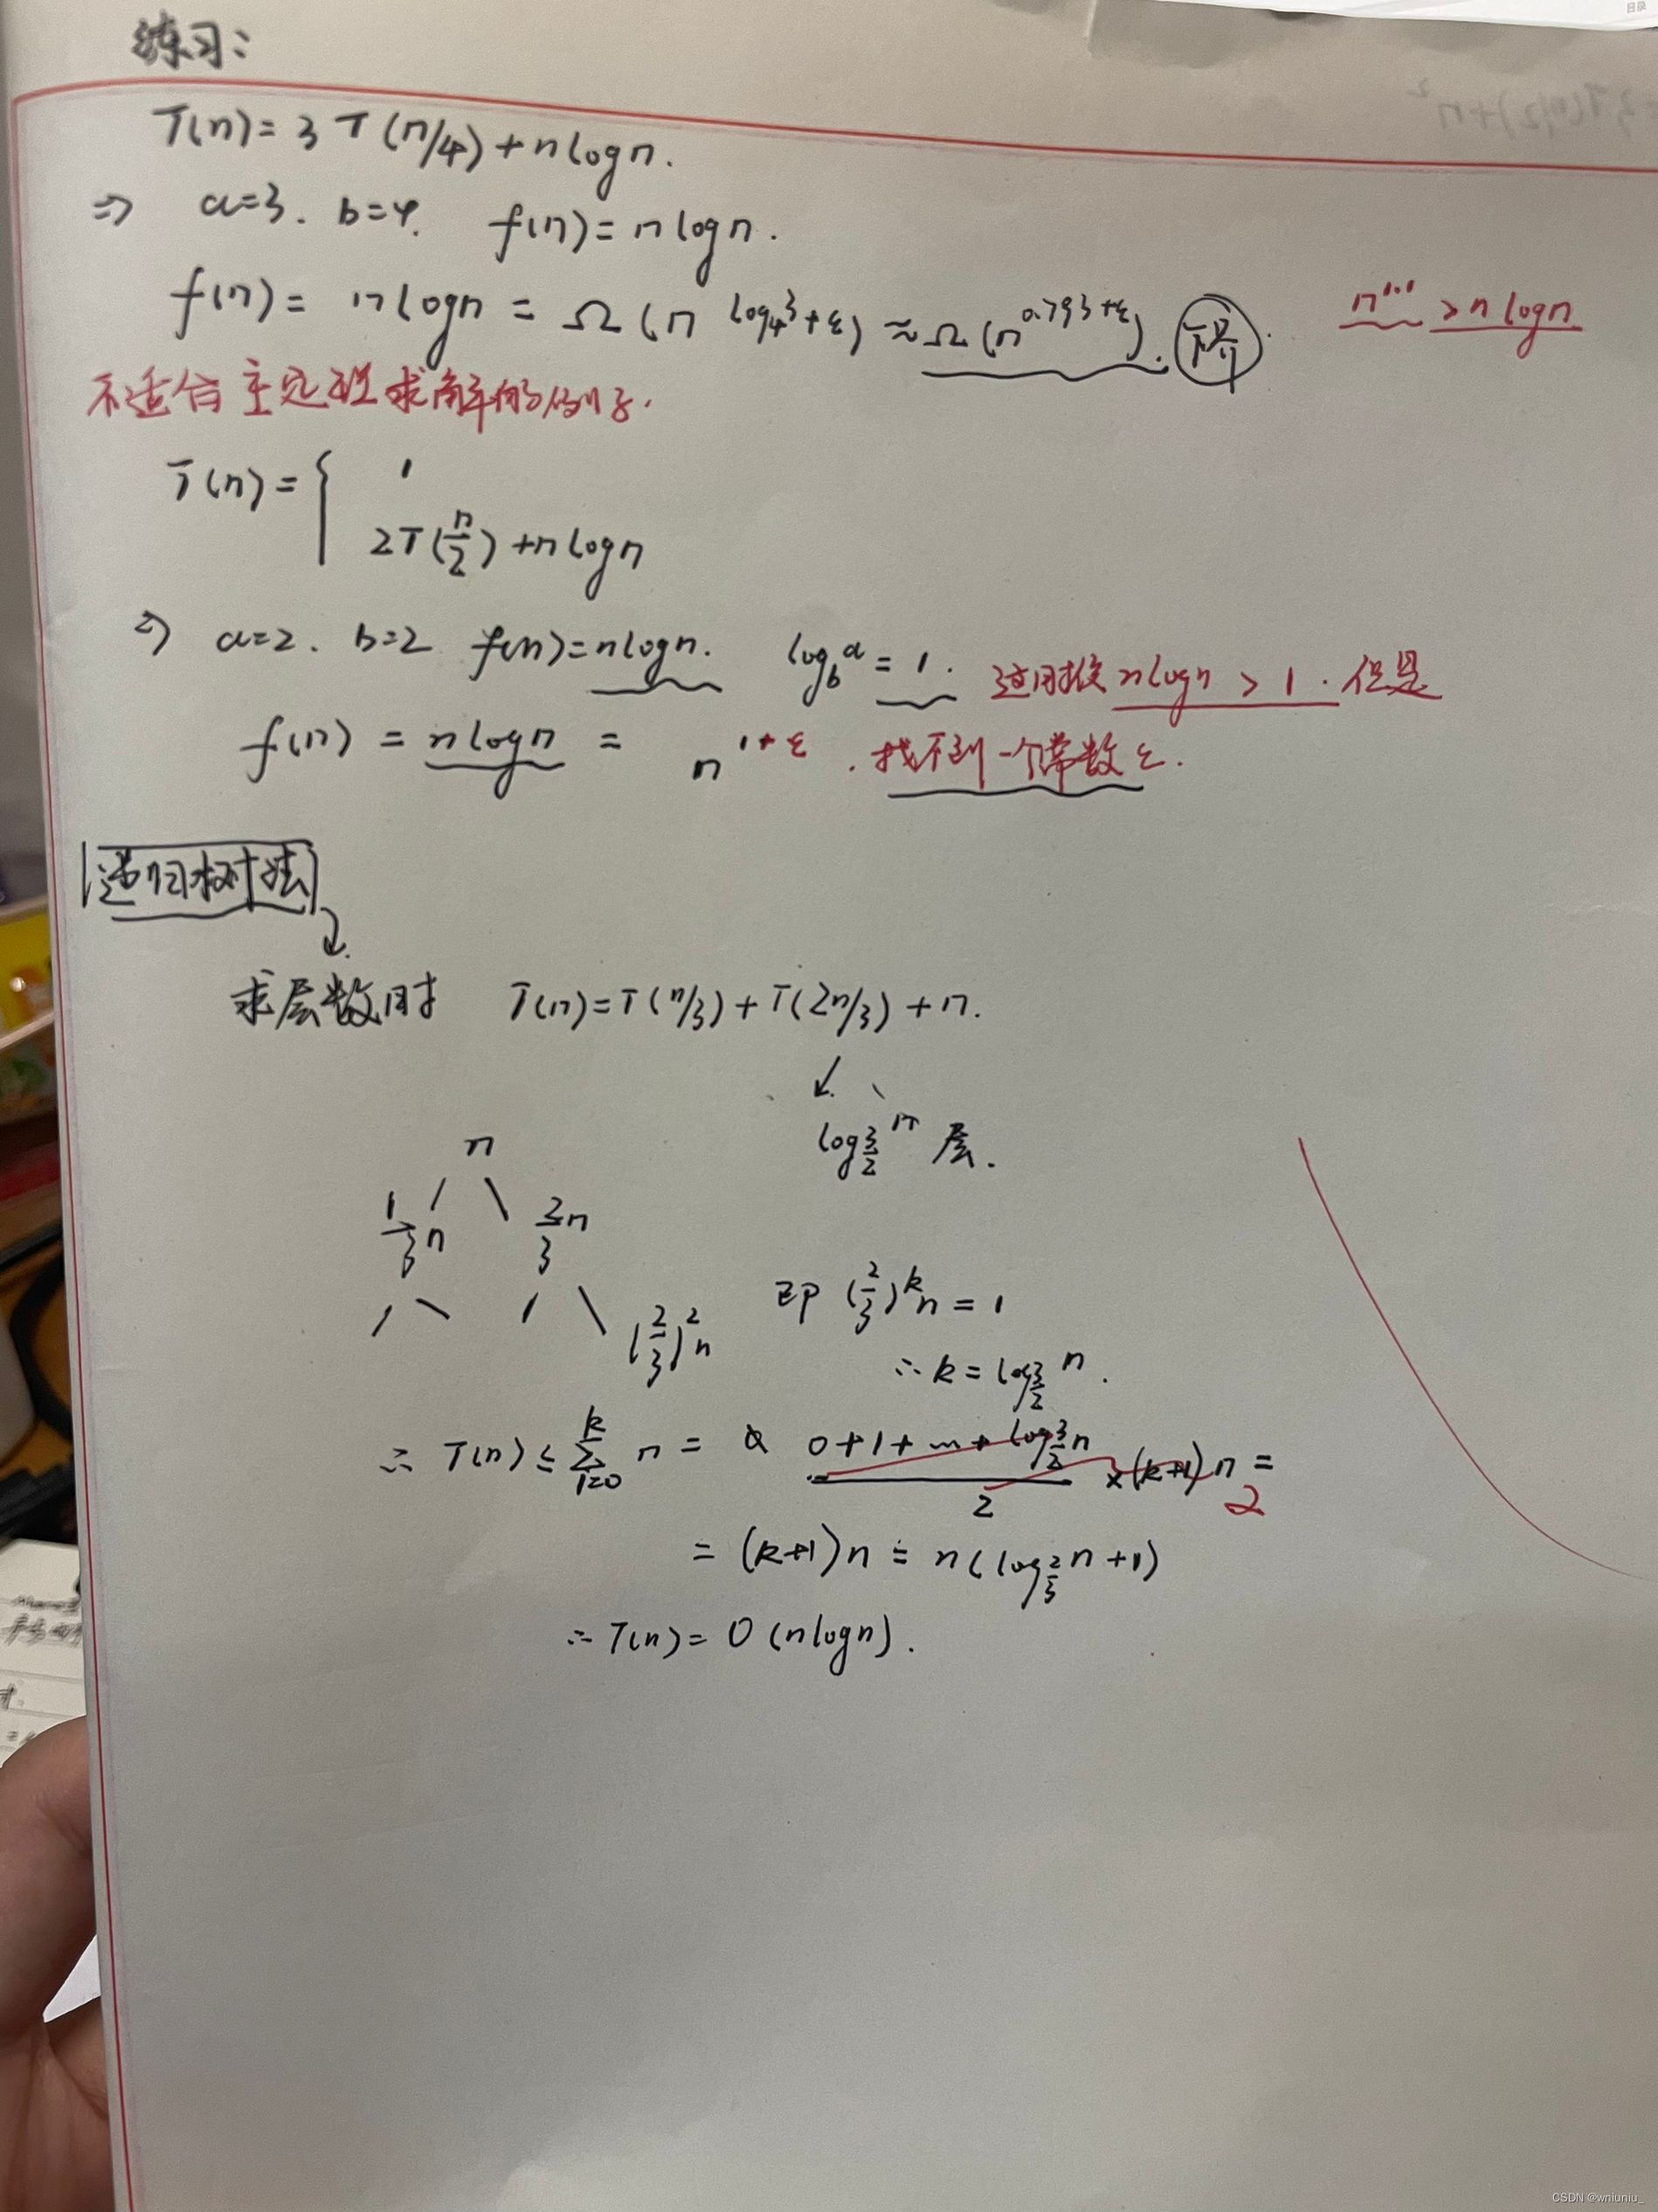 目录
练习:
T(n)=3T(n/4)+nlogn.
⇒ a=3. b=4. f(n)=nlogn.
f(n)= nlogn = Ω(n^{log_4^3+ε}) ≈ Ω(n^{0.793+ε}). n^{1.1} > nlogn
不适合主定理求解的例子.
T(n)= { 1
2T(n/2)+nlogn
⇒ a=2. b=2 f(n)=nlogn. log_b^a = 1. 这时候 nlogn > 1. 但是
f(n) = nlogn = n^{1+ε}. 找不到一个常数ε.
递归树法
求层数时 T(n)=T(n/3)+T(2n/3)+n.
log_{3/2}^n 层.
n
1/3 n 2/3 n
(2/3)^2 n
即 (2/3)^k n = 1
∴ k = log_{3/2}^n.
∴ T(n) ≤ Σ_{i=0}^{k} n = 0+1+…+log_{3/2}n / 2 ×(k+1) n =
2
= (k+1)n = n(log_{2/3}n+1)
∴ T(n)= O(nlogn).
CSDN @wniuniu_